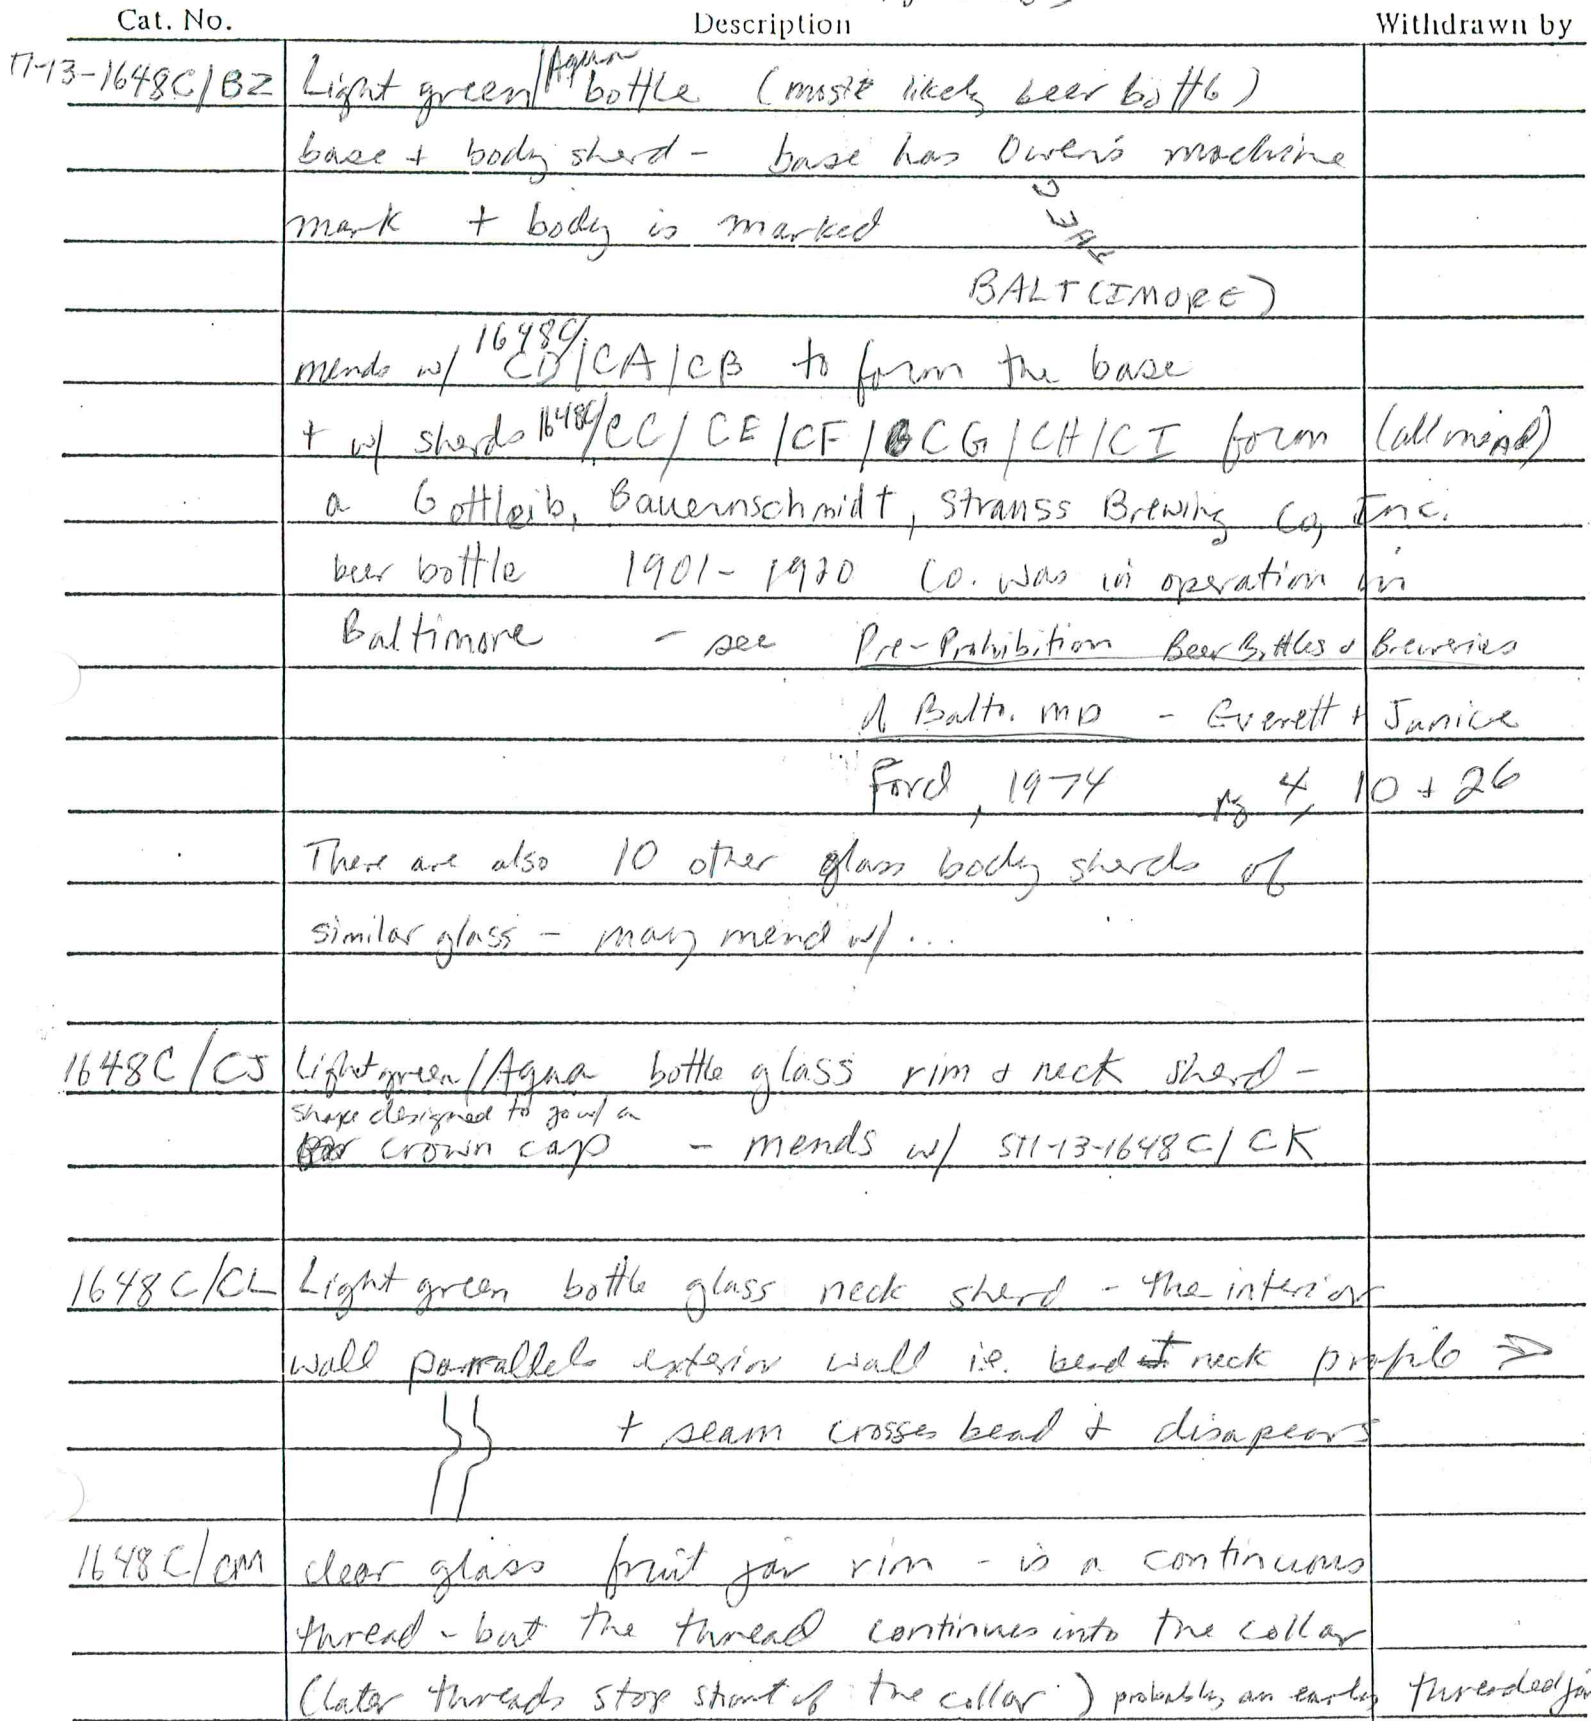 Cat. No. Description Withdrawn by
71-13-1648C/BZ Light green/Aqua bottle (most likely beer bottle)
base + body sherd - base has Owen's machine
mark + body is marked
BALT(IMORE)
mends w/ 1648C/CD/CA/CB to form the base
+ w/ sherds 1648C/CC/CE/CF/CG/CH/CI form (all mend)
a Gottleib, Bauernschmidt, Strauss Brewing Co, Inc.
beer bottle 1901-1920 Co. was in operation in
Baltimore - see Pre-Prohibition Beer Bottles & Breweries
of Balto. MD - Everett + Janice
Ford, 1974 pg 4, 10 + 26
There are also 10 other glass body sherds of
similar glass - may mend w/ ...
1648C/CJ Light green/Aqua bottle glass rim & neck sherd -
shape designed to go w/ a
crown cap - mends w/ ST1-13-1648C/CK
1648C/CL Light green bottle glass neck sherd - the interior
wall parrallels exterior wall i.e. bead + neck profile →
+ seam crosses bead & disapears
1648C/CM clear glass fruit jar rim - is a continuous
thread - but the thread continues into the collar
(later threads stop short of the collar) probably an early threaded jar